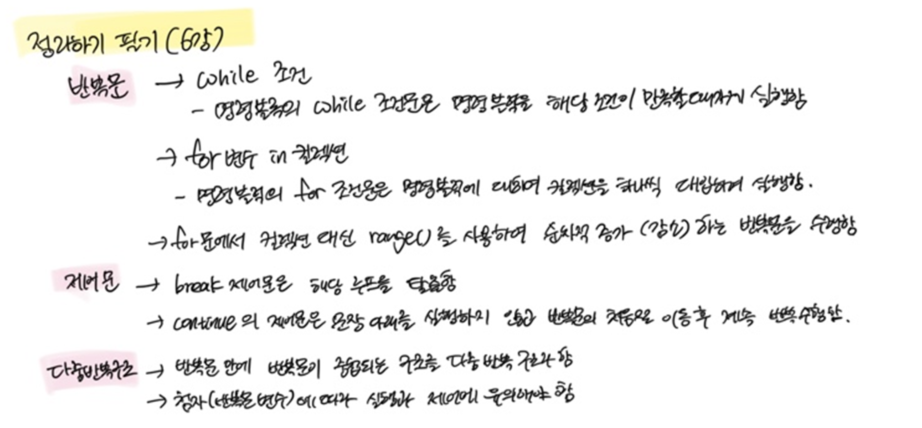 정리하기 필기(6강)
반복문 → while 조건
- 명령블록의 while 조건문은 명령블록을 해당 조건이 만족할때까지 실행함
→ for 변수 in 컬렉션
- 명령블럭의 for 조건문은 명령블럭에 대하여 컬렉션을 하나씩 대입하여 실행함.
→ for문에서 컬렉션 대신 range()를 사용하여 순차적 증가(감소)하는 반복문을 수행함
제어문 → break 제어문은 해당 루프를 탈출함
→ continue의 제어문은 문장 아래를 실행하지 않고 반복문의 처음으로 이동 후 계속 반복수행함.
다중반복구조 → 반복문 안에 반복문이 중첩되는 구조를 다중 반복 구조라 함
→ 첨자(반복문 변수)에 따라 실행과 제어에 유의해야 함